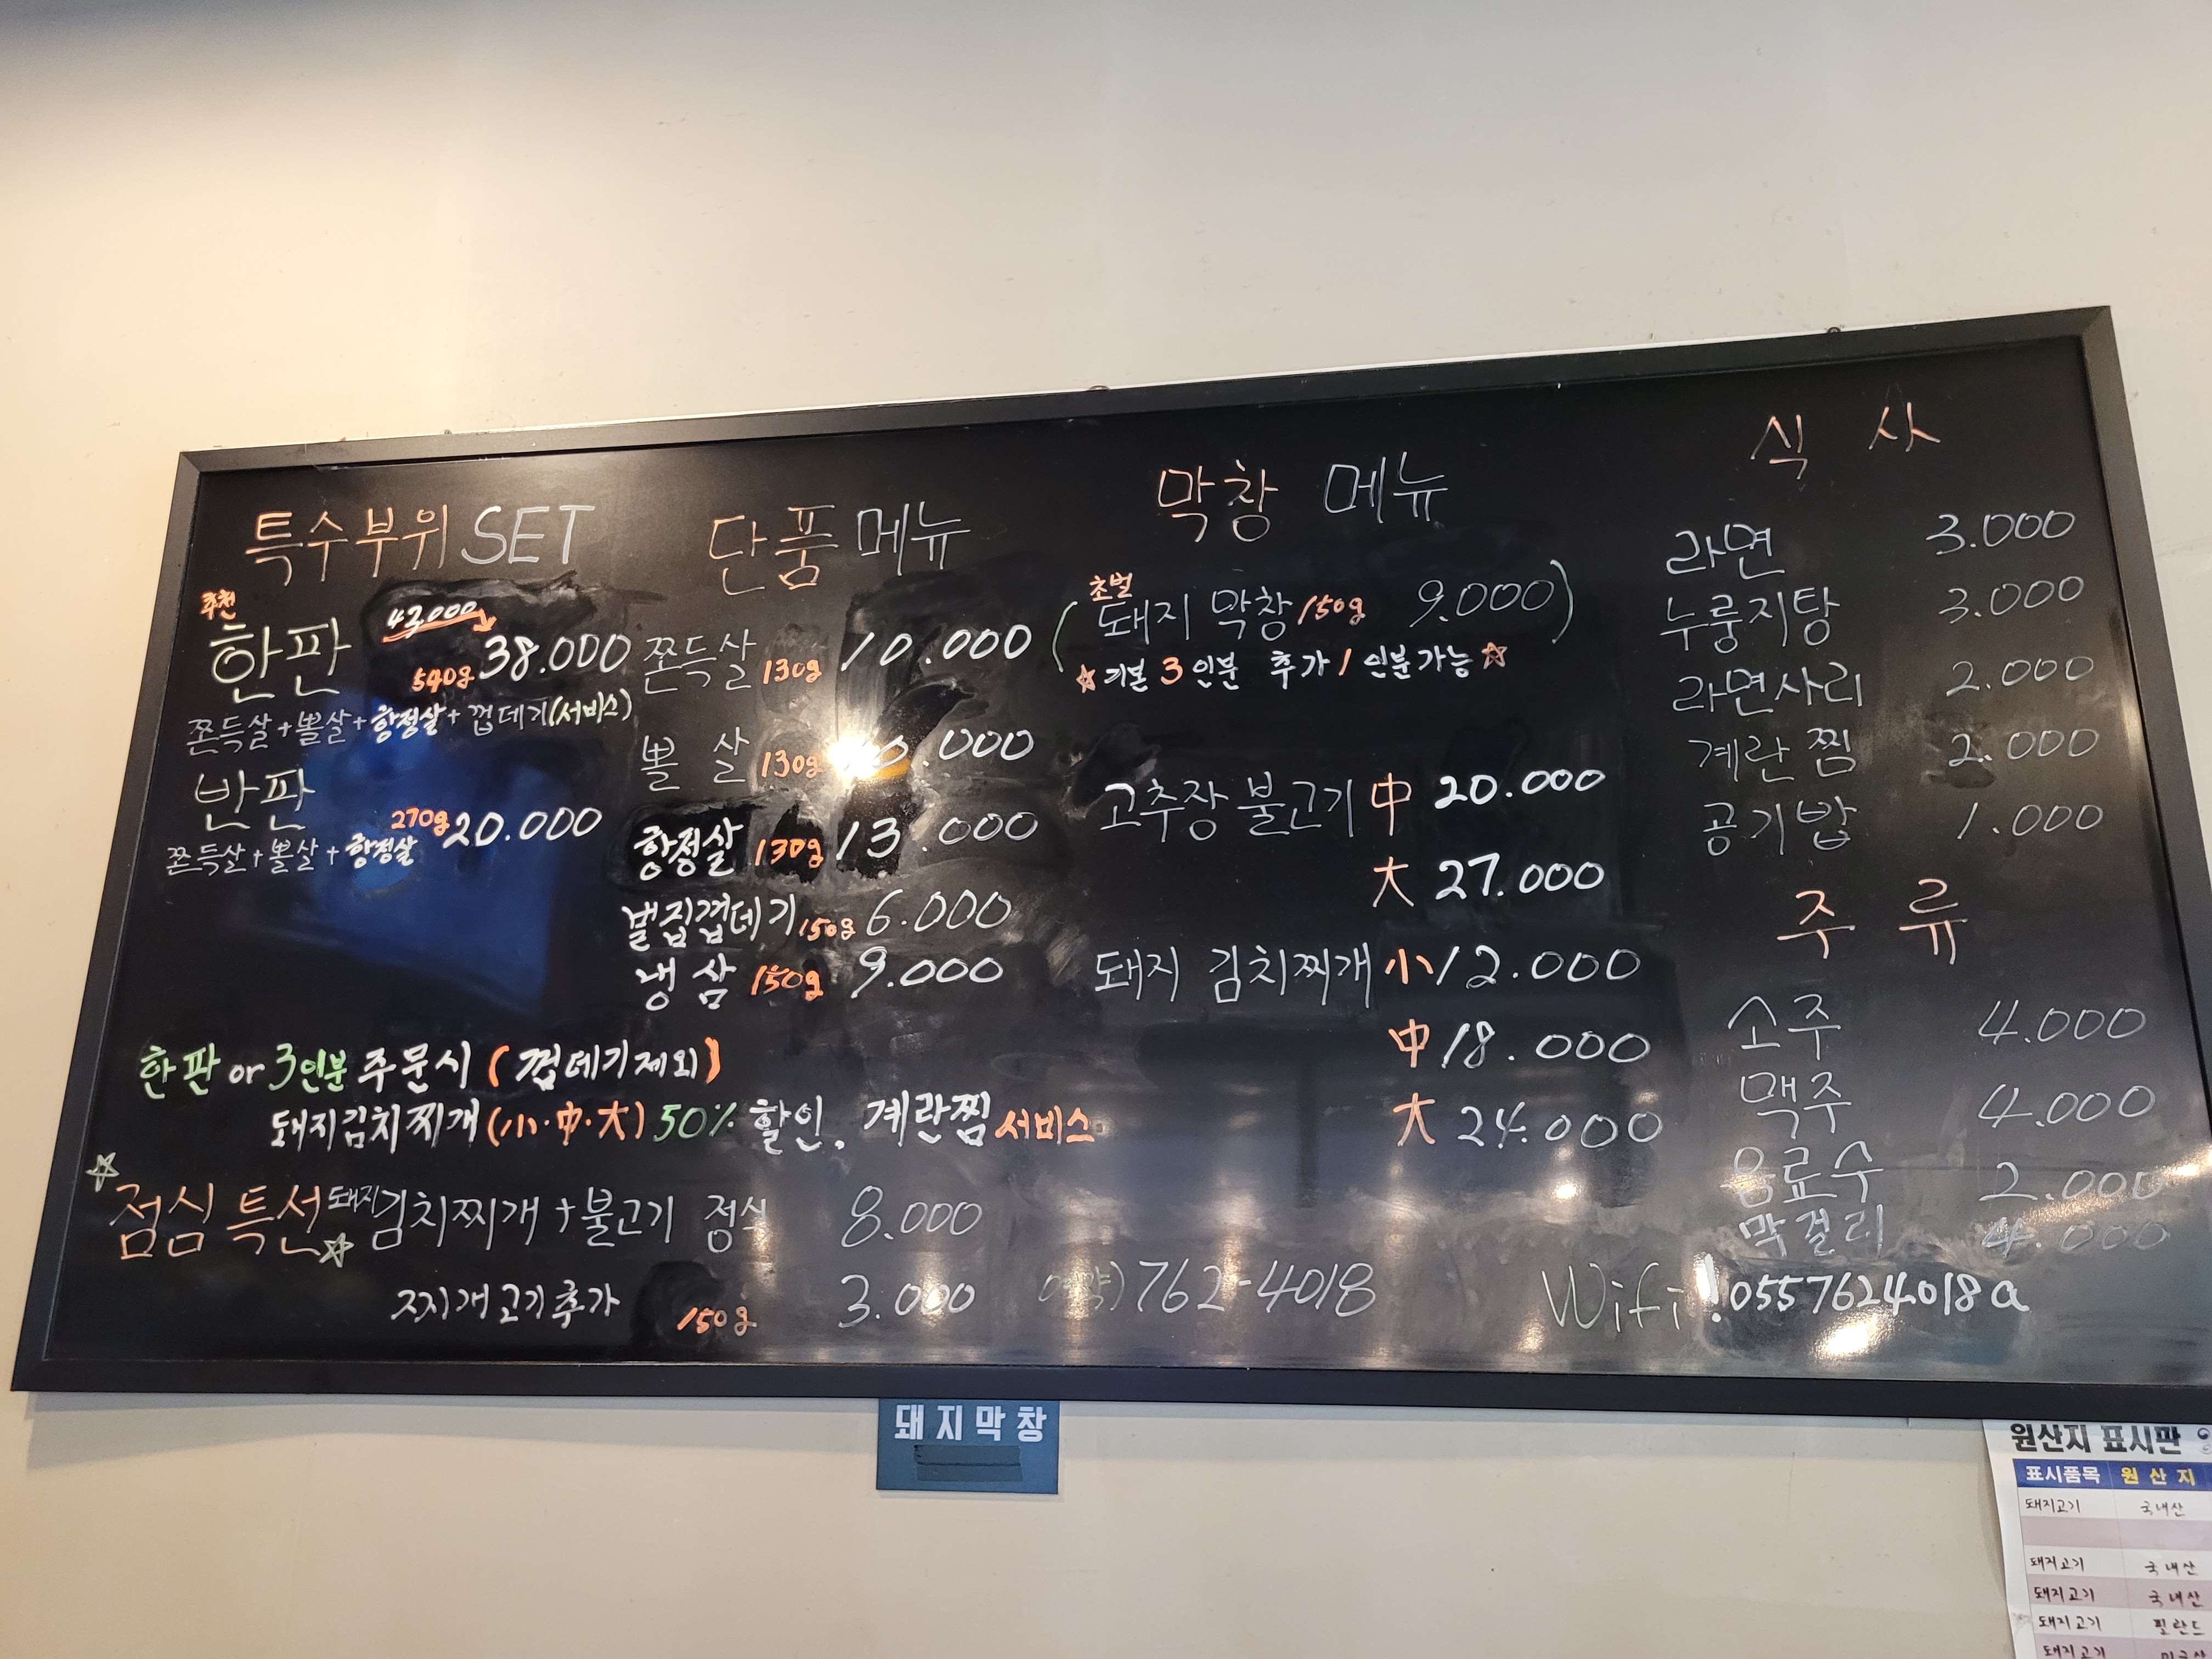 특수부위 SET
추천
한판 43.000 540g 38.000
쫀득살+뽈살+항정살+껍데기(서비스)
반판 270g 20.000
쫀득살+뽈살+항정살
단품 메뉴
쫀득살 130g 10.000
뽈살 130g .000
항정살 130g 13.000
벌집껍데기 150g 6.000
냉삼 150g 9.000
한판 or 3인분 주문시 (껍데기제외)
돼지김치찌개(小·中·大) 50% 할인. 계란찜 서비스
☆점심 특선☆ 돼지김치찌개+불고기 정식 8.000
찌개고기추가 150g 3.000
막창 메뉴
초벌
(돼지 막창 150g 9.000)
☆기본 3인분 추가 1인분가능☆
고추장 불고기 中 20.000
大 27.000
돼지 김치찌개 小 12.000
中 18.000
大 24.000
예약) 762-4018
식 사
라면 3.000
누룽지탕 3.000
라면사리 2.000
계란찜 2.000
공기밥 1.000
주 류
소주 4.000
맥주 4.000
음료수 2.000
막걸리 4.000
Wifi! 0557624018a
돼지막창
원산지 표시판
표시품목 원산지
돼지고기 국내산
돼지고기 국내산
돼지고기 국내산
돼지고기 핀란드
돼지고기